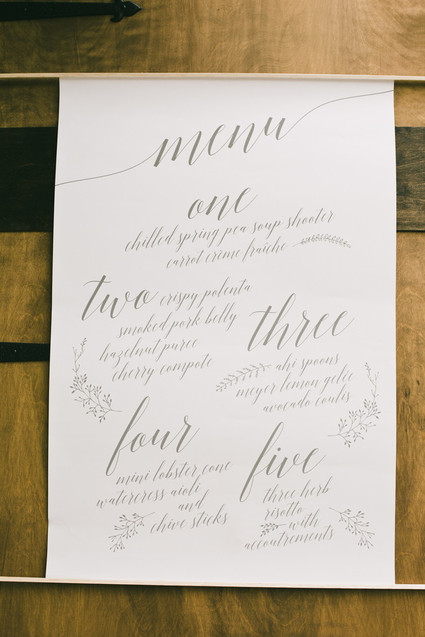 menu
one
chilled spring pea soup shooter
carrot crème fraîche
two crispy polenta
smoked pork belly
hazelnut puree
cherry compote
three
ahi spoons
meyer lemon gelée
avocado coulis
four
mini lobster cone
watercress aioli
and
chive sticks
five
three herb
risotto
with
accoutrements